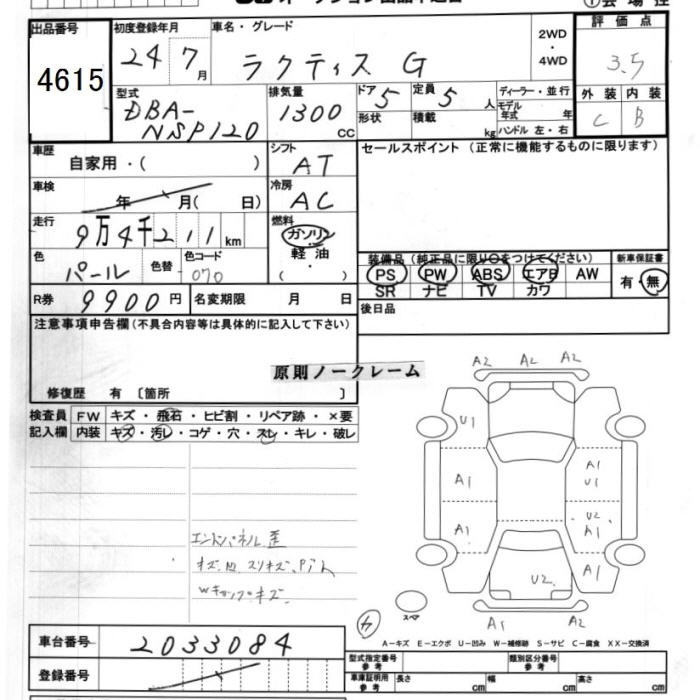 出品番号
4615
初度登録年月
24 7月
車名・グレード
ラクティス G
2WD
・
4WD
評価点
3.5
外装 内装
C B
型式
DBA-
NSP120
排気量
1300
CC
ドア 5
定員 5 人
形状
積載 kg
ディーラー・並行
モデル
年式 年
ハンドル 左・右
車歴
自家用・( )
シフト
AT
セールスポイント (正常に機能するものに限ります)
車検
年 月( 日)
冷房
AC
走行
9万4千211km
燃料
ガソリン
軽油
( ・ )
色
パール
色替
色コード
070
装備品(純正品に限り○をつけてください)
PS PW ABS エアB AW
SR ナビ TV カワ
新車保証書
有・無
R券
9900円
名変期限 月 日
後日品
注意事項申告欄(不具合内容等は具体的に記入して下さい)
原則ノークレーム
修復歴 有 〔箇所 〕
検査員
記入欄
FW キズ・飛石・ヒビ割・リペア跡・×要
内装 キズ・汚レ・コゲ・穴・スレ・キレ・破レ
A2 A2 A2
U1
A1 A1
U1
A1 U2
A1
A1
U2
A1 A2
スペア
A-キズ E-エクボ U-凹み W-補修跡 S-サビ C-腐食 XX-交換済
車台番号
2033084
登録番号
型式指定番号
参考
類別区分番号
参考
車庫証明用
参考
長さ cm
幅 cm
高さ cm